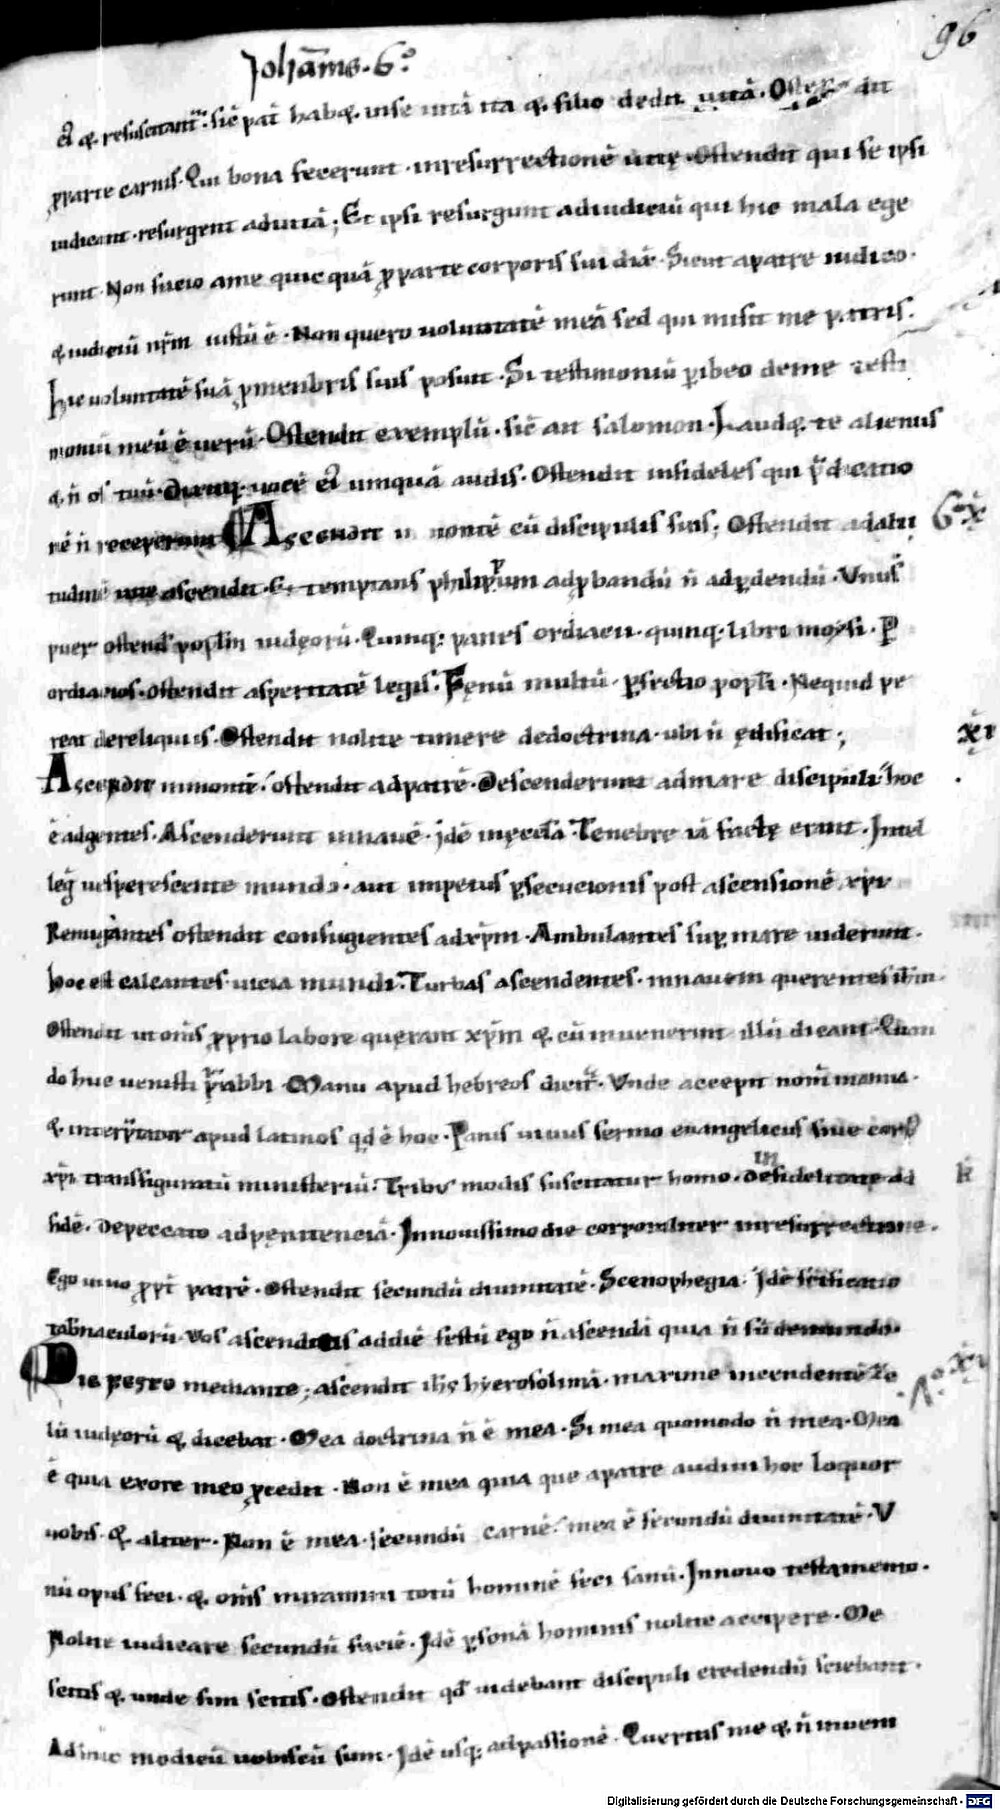 Joha&#772;nis . 6º
96
pparte carnis . Qui bona fecerunt . inresurrectionē uitę . Ostendit qui se ipsi
iudicant . resurgent aduitā ; Et ipsi resurgunt adiudiciū qui hic mala ege
runt . Non facio ame quicquā pparte corporis sui dix̄ . Sicut apatre iudico .
& iudiciū nr̄m iustū ē . Non quero uoluntatē meā sed qui misit me patris .
Hic uoluntatē suā p menbris suis posuit . Si testimoniū p̱ibeo deme testi
moniū meū ē uerū . Ostendit exemplū . sic̄ ait salomon . Laud& te alienus
& n̄ os tuū . uocē ei' umquā audis . Ostendit infideles qui p̄dicatio
nē n̄ receperunt Ascendit in montē cū discipulis suis ; Ostendit adalti
6º x̄
tudinē uite ascendit . Et temptans philippum adp̱bandū n̄ adp̱dendū . Vnus
puer ostend' popl̄m iudęorū . Quinq: panes ordiacii . quinq: libri moysi . P̱
ordiacios . ostendit asperitatē legis . Fęnū multū . p̱fectio popl̄i . Nequid pe
reat dereliquiis . Ostendit nolite timere dedoctrina . ubi n̄ ędificat ;
x̄i
Ascendit inmontē . ostendit adpatrē . Descenderunt admare discipuli hoc
ē adgentes . Ascenderunt innauē . idē inęccl̄a . Tenebre iā factę erant . Intel
leḡ uesperescente mundo . aut impetus p̱secucionis post ascensionē xp̄i
Remigantes ostendit confugientes adxp̄m . Ambulantes sup̱ mare uiderunt .
hoc est calcantes uicia mundi . Turbas ascendentes . innauem querentes ih̄m .
Ostendit ut om̄s p̱prio labore querant xp̄m & cū inuenerint illū dicant . Quan
do huc uenisti rabbi . Manu apud hebreos dicit̄ . Vnde accepit nom̄ manna .
& interp̄tatur apud latinos qd̄ ē hoc . Panis uiuus sermo euangelicus siue corp'
xp̄i transfiguratū ministeriū . Tribus modis suscitatur homo . De infidelitate ad
fidē . Depeccato adpęnitenciā . Innouissimo die corporaliter inresurrectione .
Ego uiuo pp̄t patrē . Ostendit secundū diuinitatē . Scenophegia . Idē
tab̄naculorū . Vos ascenditis addiē festū ego n̄ ascendā quia n̄ sū demundo .
Die festo mediante ; ascendit ih̄s hyerosolimā . maxime incendentē ze
x̄i
lū iudęorū & dicebat . Mea doctrina n̄ ē mea . Si mea quomodo n̄ mea . Mea
ē quia exore meo p̱cedit . Non ē mea quia que apatre audiui hoc loquor
uobis . & aliter . Non ē mea . secundū carnē . mea ē secundū diuinitatē . V
nū opus feci . & om̄s miramini totū hominē feci sanū . Innouo testamento .
Nolite iudicare secundū faciē . Idē p̱sonā hominis nolite accipere . Me
scitis & unde sim scitis . Ostendit qd̄ uidebant discipuli credendū sciebant .
Adhuc modicū uobiscū sum . Idē usq: adpassionē . Queritis me & n̄ inueni
Digitalisierung gefördert durch die Deutsche Forschungsgemeinschaft - DFG